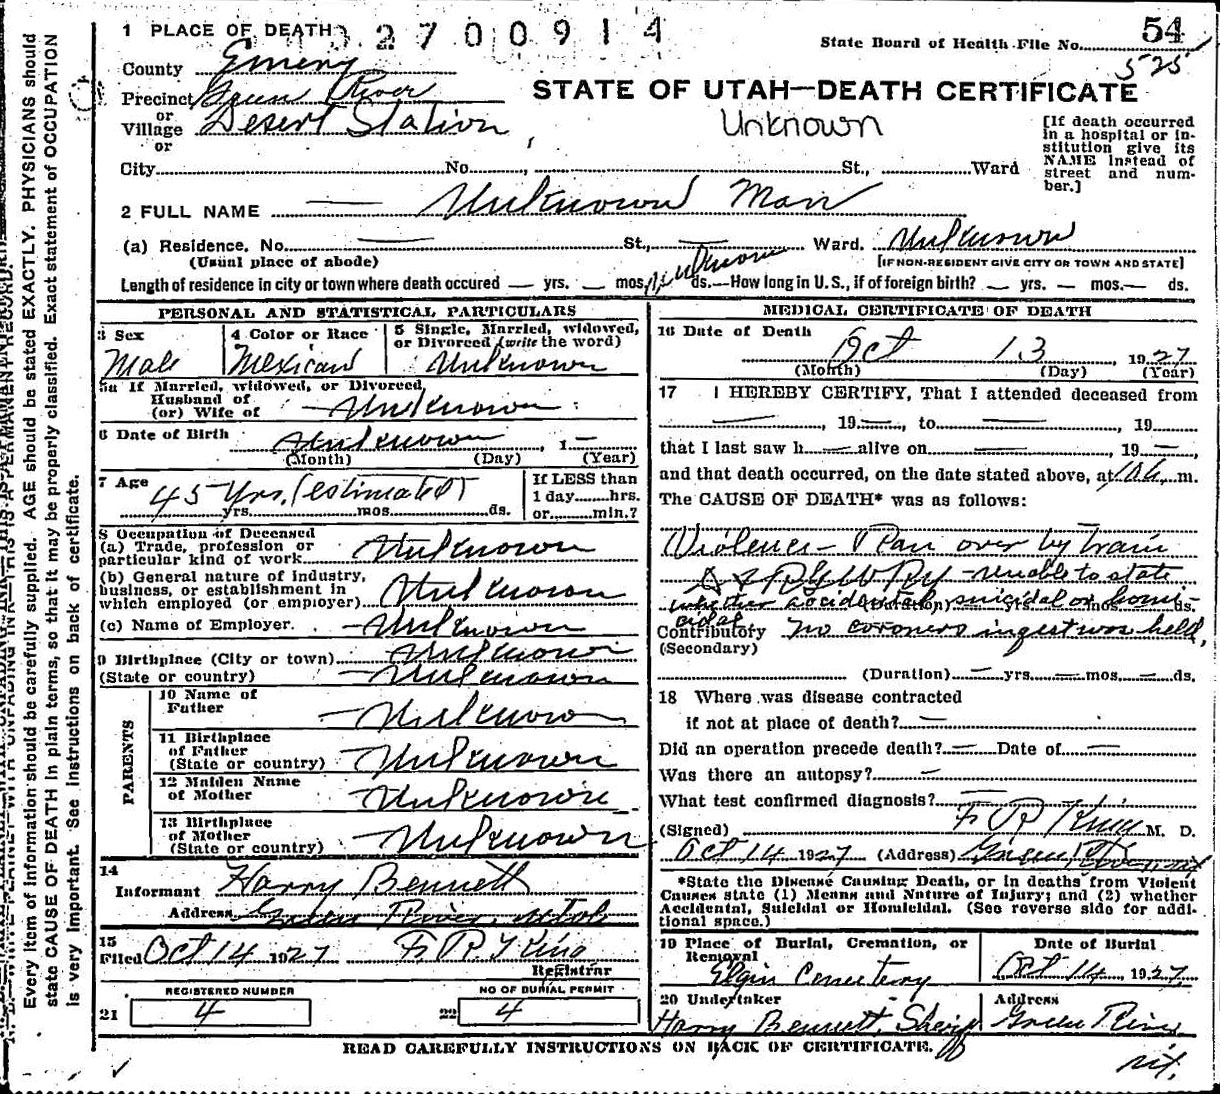 1 PLACE OF DEATH 2700914
State Board of Health File No. 54
525
County Emery
Precinct Green River
or
Village Desert Station
or
STATE OF UTAH—DEATH CERTIFICATE
Unknown
[If death occurred in a hospital or institution give its NAME instead of street and number.]
City No. St., Ward
2 FULL NAME — Unknown Man
(a) Residence. No. — St., — Ward. Unknown
(Usual place of abode) [IF NON-RESIDENT GIVE CITY OR TOWN AND STATE]
Length of residence in city or town where death occured — yrs. — mos. Unknown ds.—How long in U.S., if of foreign birth? — yrs. — mos.— ds.
PERSONAL AND STATISTICAL PARTICULARS
3 Sex
Male
4 Color or Race
Mexican
5 Single, Married, widowed, or Divorced (write the word)
Unknown
5a If Married, widowed, or Divorced,
Husband of
(or) Wife of — Unknown
6 Date of Birth Unknown, 1—
(Month) (Day) (Year)
7 Age 45 Yrs. (estimated)
yrs. mos. ds.
If LESS than
1 day hrs.
or min.?
8 Occupation of Deceased
(a) Trade, profession or
particular kind of work Unknown
(b) General nature of industry,
business, or establishment in
which employed (or employer) Unknown
(c) Name of Employer. — Unknown
9 Birthplace (City or town) Unknown
(State or country) — Unknown
PARENTS
10 Name of
Father — Unknown
11 Birthplace
of Father
(State or country) — Unknown
12 Maiden Name
of Mother Unknown
13 Birthplace
of Mother
(State or country) — Unknown
14
Informant Harry Bennett
Address Green River, Utah
15
Filed Oct 14 1927 F R King
Registrar
REGISTERED NUMBER
21 4
NO OF BURIAL PERMIT
22 4
MEDICAL CERTIFICATE OF DEATH
16 Date of Death
Oct 13, 1927
(Month) (Day) (Year)
17 I HEREBY CERTIFY, That I attended deceased from
—, 19—, to —, 19
that I last saw h — alive on —, 19—
and that death occurred, on the date stated above, at 10a m.
The CAUSE OF DEATH* was as follows:
Violence - Ran over by train
D & RGW Ry - unable to state
whether accidental, suicidal or homi-
cidal
Contributory no coroners inqest was held,
(Secondary)
(Duration) — yrs. — mos. — ds.
18 Where was disease contracted
if not at place of death? —
Did an operation precede death? — Date of —
Was there an autopsy? —
What test confirmed diagnosis? —
(Signed) F R King M. D.
Oct 14 1927 (Address) Green River, Ut
*State the Disease Causing Death, or in deaths from Violent
Causes state (1) Means and Nature of Injury; and (2) whether
Accidental, Suicidal or Homicidal. (See reverse side for addi-
tional space.)
19 Place of Burial, Cremation, or
Removal
Elgin Cemetery
Date of Burial
Oct 14, 1927
20 Undertaker
Harry Bennett, Sheriff
Address
Green River
Ut.
READ CAREFULLY INSTRUCTIONS ON BACK OF CERTIFICATE.
Every item of information should be carefully supplied. AGE should be stated EXACTLY. PHYSICIANS should
state CAUSE OF DEATH in plain terms, so that it may be properly classified. Exact statement of OCCUPATION
is very important. See instructions on back of certificate.